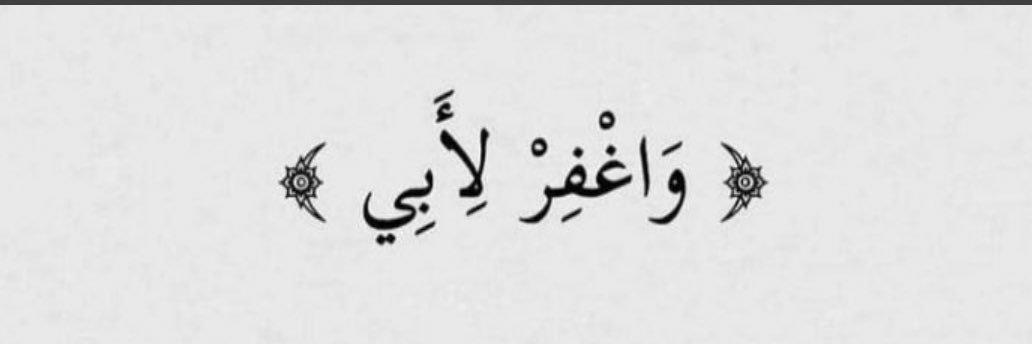 ﴿ وَاغْفِرْ لِأَبِي ﴾